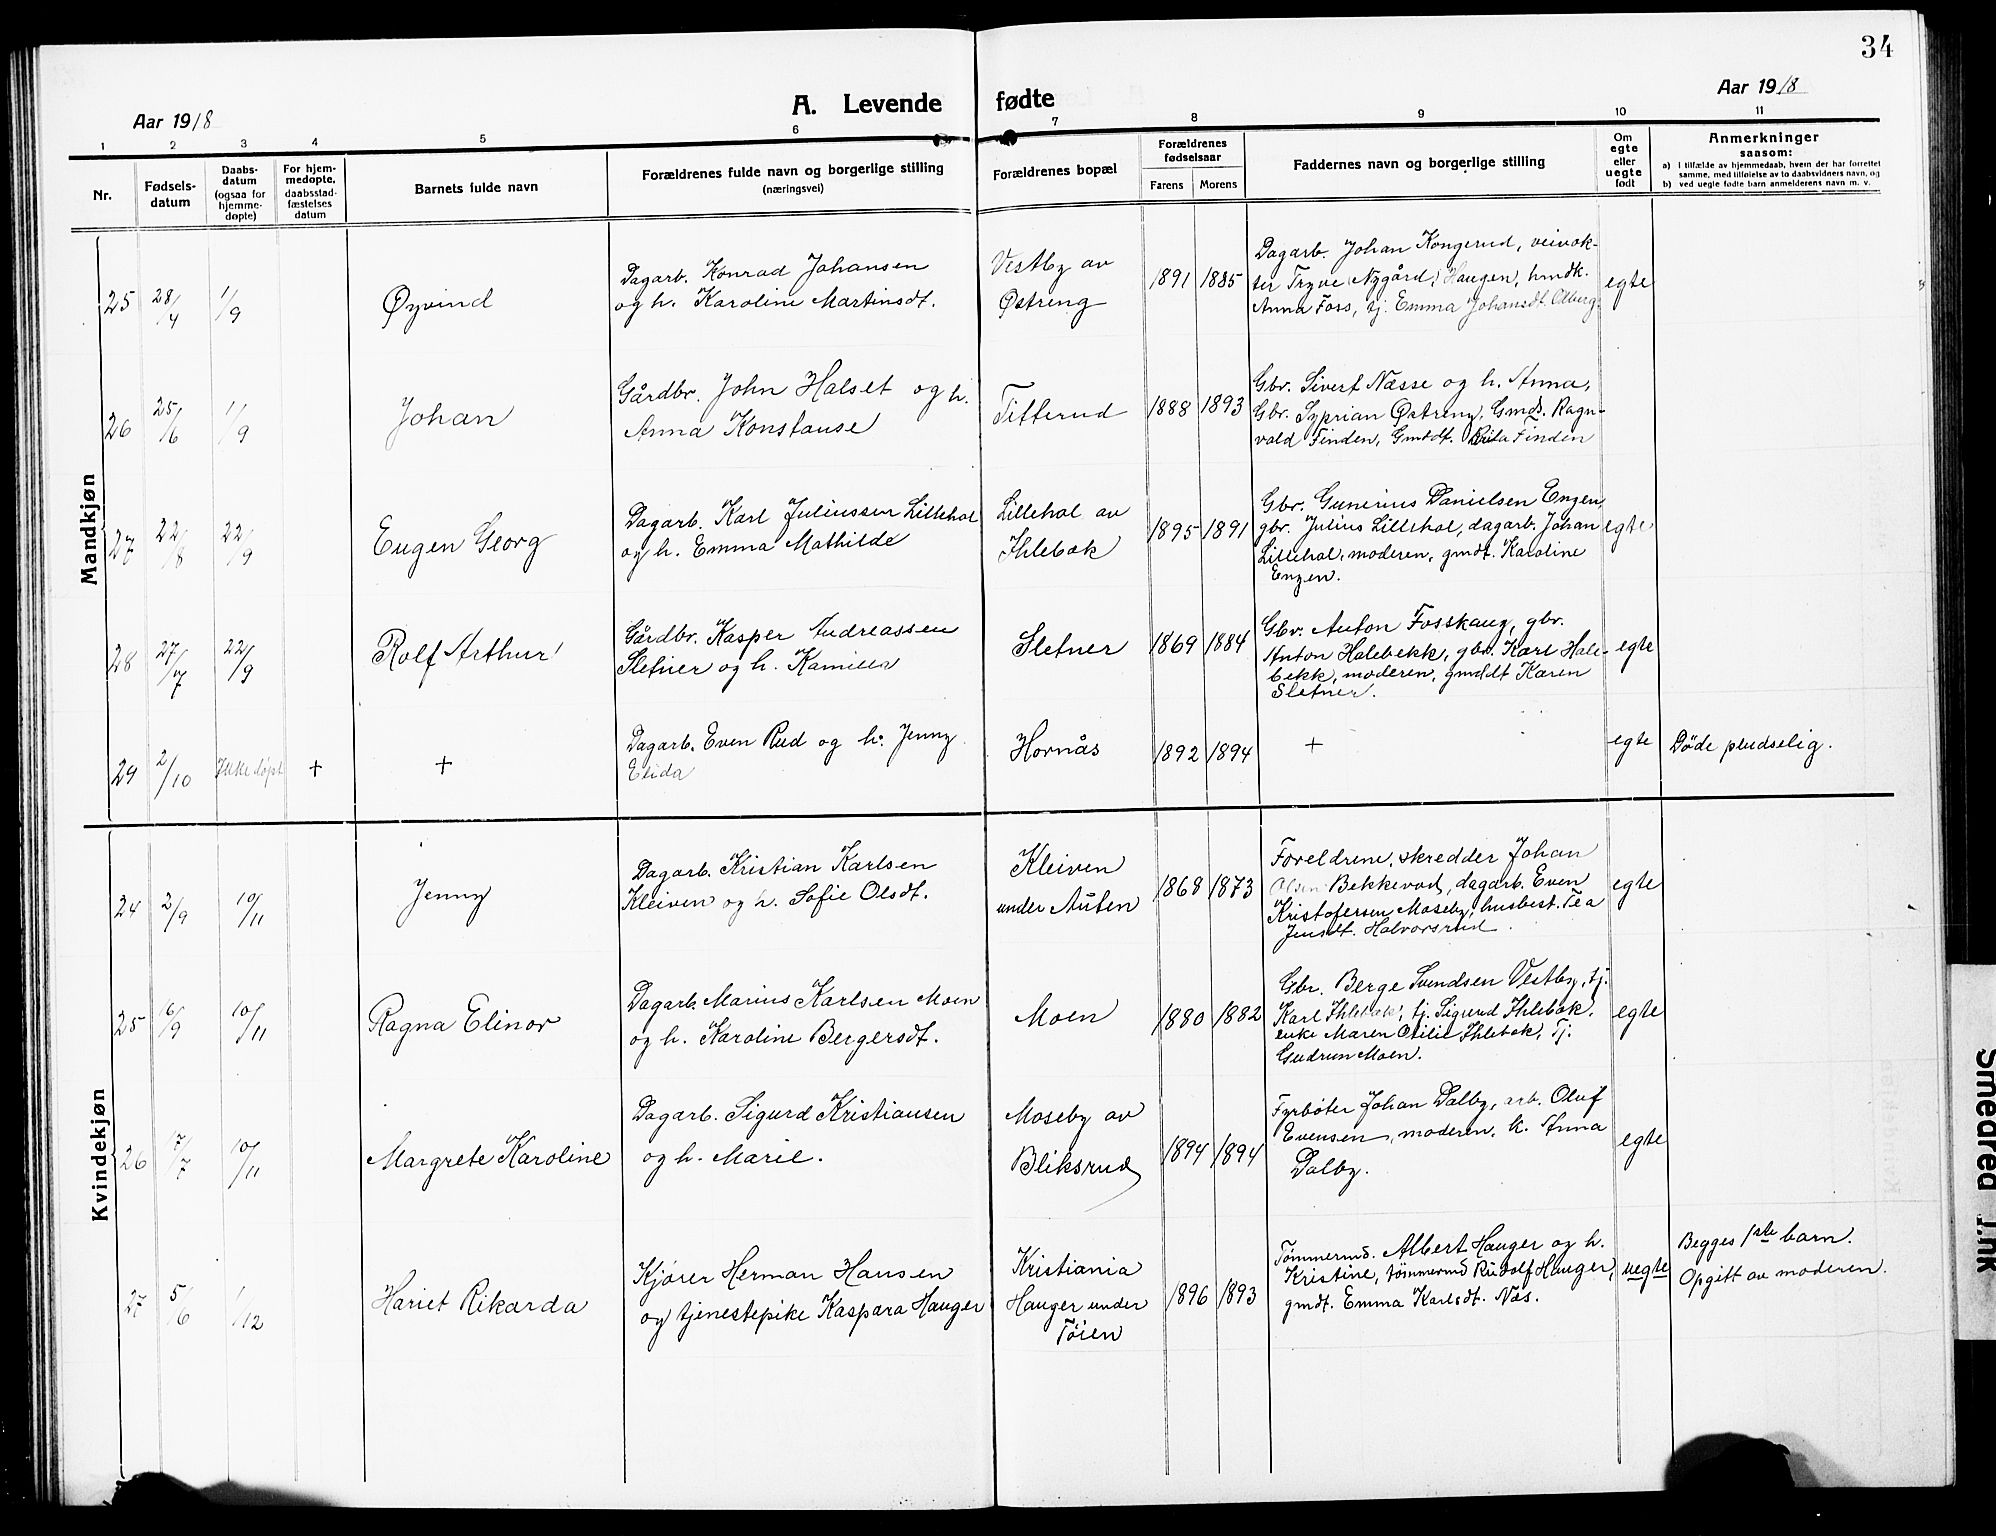 34
Aar 1918
A. Levende fødte
Aar 1918
1 2 3 4 5 6 7 8 9 10 11
Nr.
Fødsels-
datum
Daabs-
datum
(ogsaa for
hjemme-
døpte)
For hjem-
medøpte,
daabsstad-
fæstelses
datum
Barnets fulde navn
Forældrenes fulde navn og borgerlige stilling
(næringsvei)
Forældrenes bopæl
Forældrenes
fødselsaar
Farens Morens
Faddernes navn og borgerlige stilling
Om
egte
eller
uegte
født
Anmerkninger
saasom:
a) I tilfælde av hjemmedaab, hvem der har forrettet
samme, med tilføielse av to daabsvidners navn, og
b) ved uegte fødte barn anmelderens navn m. v.
Mandkjøn
25 28/4 1/9 Øyvind
Dagarb. Konrad Johansen
og h. Karoline Martinsdt.
Vestby av
Østreng
1891 1885
Dagarb. Johan Kongerud, veivok-
ter Tryve Nygård, Haugen, hmdk.
Anna Foss, tj. Emma Johansdt. Olberg.
egte
26 25/6 1/9 Johan
Gårdbr. John Halset og h.
Anna Konstanse
Titterud
1888 1893
Gbr. Sivert Næsse og h. Anna,
Gbr. Syprian Østreng, Gmds. Ragn-
vald Finden, Gmdt. Finden
27 22/8 22/9 Eugen Georg
Dagarb. Karl Juliussen Lillehol
og h. Emma Mathilde
Lillehol av
Ihlebæk
1895 1891
Gbr. Gunerius Danielsen Engen,
gbr. Julius Lillehol, dagarb. Johan
Lillehol, moderen, gmdt. Karoline
Engen.
egte
28 27/7 22/9 Rolf Arthur
Gårdbr. Kasper Andreassen
Sletner og h. Kamilla
Sletner
1869 1884
Gbr. Anton Fosshaug, gbr.
Anton Halebekk, gbr. Karl Hale-
bekk, moderen, gmdt Karen
Sletner.
egte
29 2/10 Ikke døpt + +
Dagarb. Even Rud og h. Jenny
Elida
Hornås
1892 1894
+
egte
Døde pludselig.
Kvindekjøn
24 2/9 10/11 Jenny
Dagarb. Kristian Karlsen
Kleiven og h. Sofie Olsdt.
Kleiven
under Auten
1868 1873
Foreldrene, skredder Johan
Olsen Bekkevod, dagarb. Even
Kristofersen Moseby, husbest. Tea
Jensdt. Halvorsrud.
egte
25 6/9 10/11 Ragna Elinor
Dagarb. Marius Karlsen Moen
og h. Karoline Bergersdt.
Moen
1880 1882
Gbr. Berge Svendsen Vestby, tj.
Karl Ihlebæk, tj. Sigurd Ihlebæk,
enke Maren Otilie Ihlebæk, Tj.
Gudrun Moen.
egte
26 7/7 10/11 Margrete Karoline
Dagarb. Sigurd Kristiansen
og h. Marie.
Moseby av
Bliksrud
1894 1894
Fyrbøter Johan Dalby, arb. Oluf
Evensen, moderen, k. Anna
Dalby.
egte
27 5/6 1/12 Hariet Rikarda
Kjører Herman Hansen
og tjenestepike Kaspara Hauger
Kristiania
Hauger under
Tøien
1896 1893
Tømmermd. Albert Hauger og h.
Kristine, tømmermd Rudolf Hauger,
gmdt. Emma Karlsdt. Næs.
uegte
Begges 1ste barn.
Opgitt av moderen.
Smeared Ink